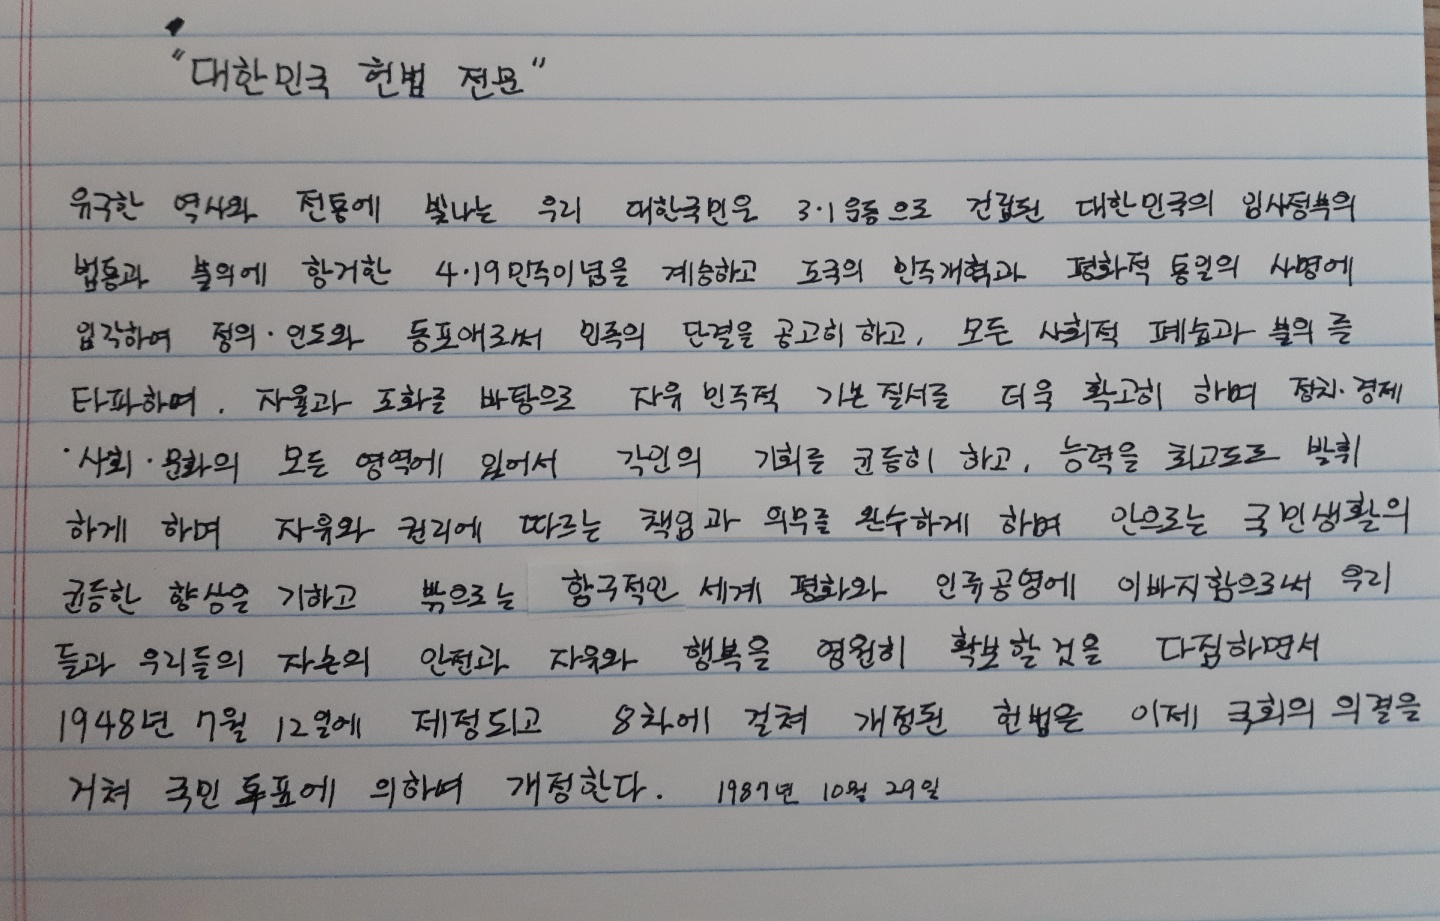 "대한민국 헌법 전문"
유구한 역사와 전통에 빛나는 우리 대한국민은 3·1운동으로 건립된 대한민국의 임시정부의
법통과 불의에 항거한 4·19민주이념을 계승하고 조국의 민주개혁과 평화적 통일의 사명에
입각하여 정의·인도와 동포애로써 민족의 단결을 공고히 하고, 모든 사회적 폐습과 불의를
타파하며, 자율과 조화를 바탕으로 자유 민주적 기본질서를 더욱 확고히 하며 정치·경제
·사회·문화의 모든 영역에 있어서 각인의 기회를 균등히 하고, 능력을 최고도로 발휘
하게 하며 자유와 권리에 따르는 책임과 의무를 완수하게 하며 안으로는 국민생활의
균등한 향상을 기하고 밖으로는 항구적인 세계 평화와 인류공영에 이바지함으로써 우리
들과 우리들의 자손의 안전과 자유와 행복을 영원히 확보할 것을 다짐하면서
1948년 7월 12일에 제정되고 8차에 걸쳐 개정된 헌법을 이제 국회의 의결을
거쳐 국민 투표에 의하여 개정한다. 1987년 10월 29일